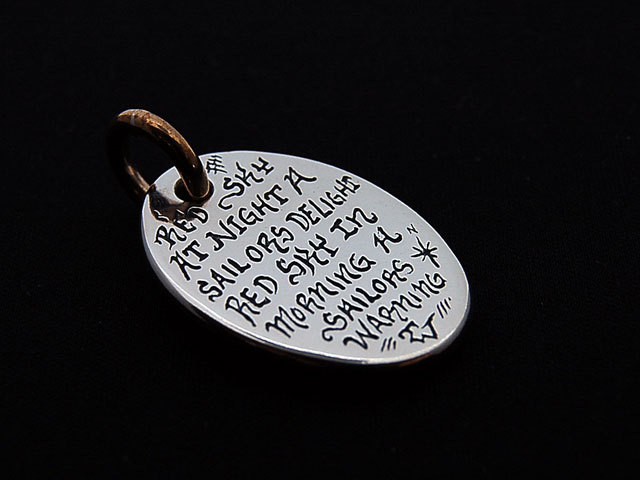 RED SKY
AT NIGHT A
SAILORS DELIGHT
RED SKY IN
MORNING A
SAILORS
WARNING
N